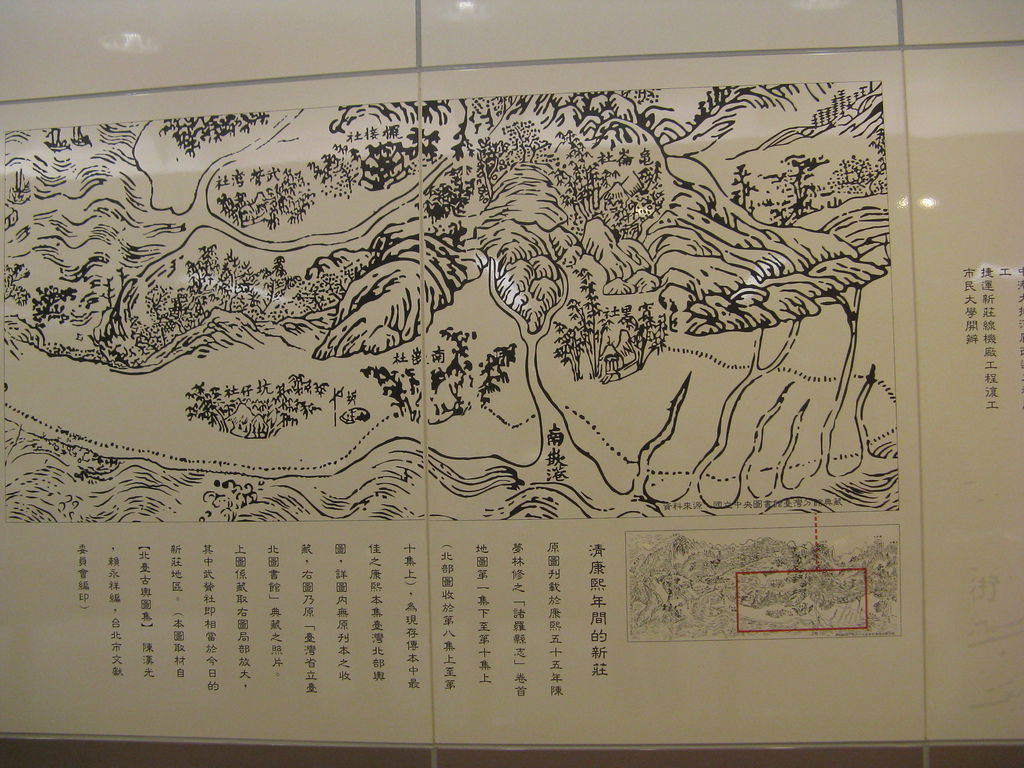 擺接社
武朥灣社
龜崙社
霄里社
南嵌社
坑仔社
南嵌港
資料來源：國立中央圖書館臺灣分館典藏
工
捷運新莊線機廠工程竣工
市民大學開辦
清康熙年間的新莊
原圖刊載於康熙五十五年陳
夢林修之「諸羅縣志」卷首
地圖第一集下至第十集上
（北部圖收於第八集上至第
十集上），為現存傳本中最
佳之康熙本集臺灣北部輿
圖，詳圖內無原刊本之收
藏，右圖乃原「臺灣省立臺
北圖書館」典藏之照片。
上圖係截取右圖局部放大，
其中武朥社即相當於今日的
新莊地區。（本圖取材自
【北臺古輿圖集】 陳漢光
，賴永祥編，台北市文獻
委員會編印）